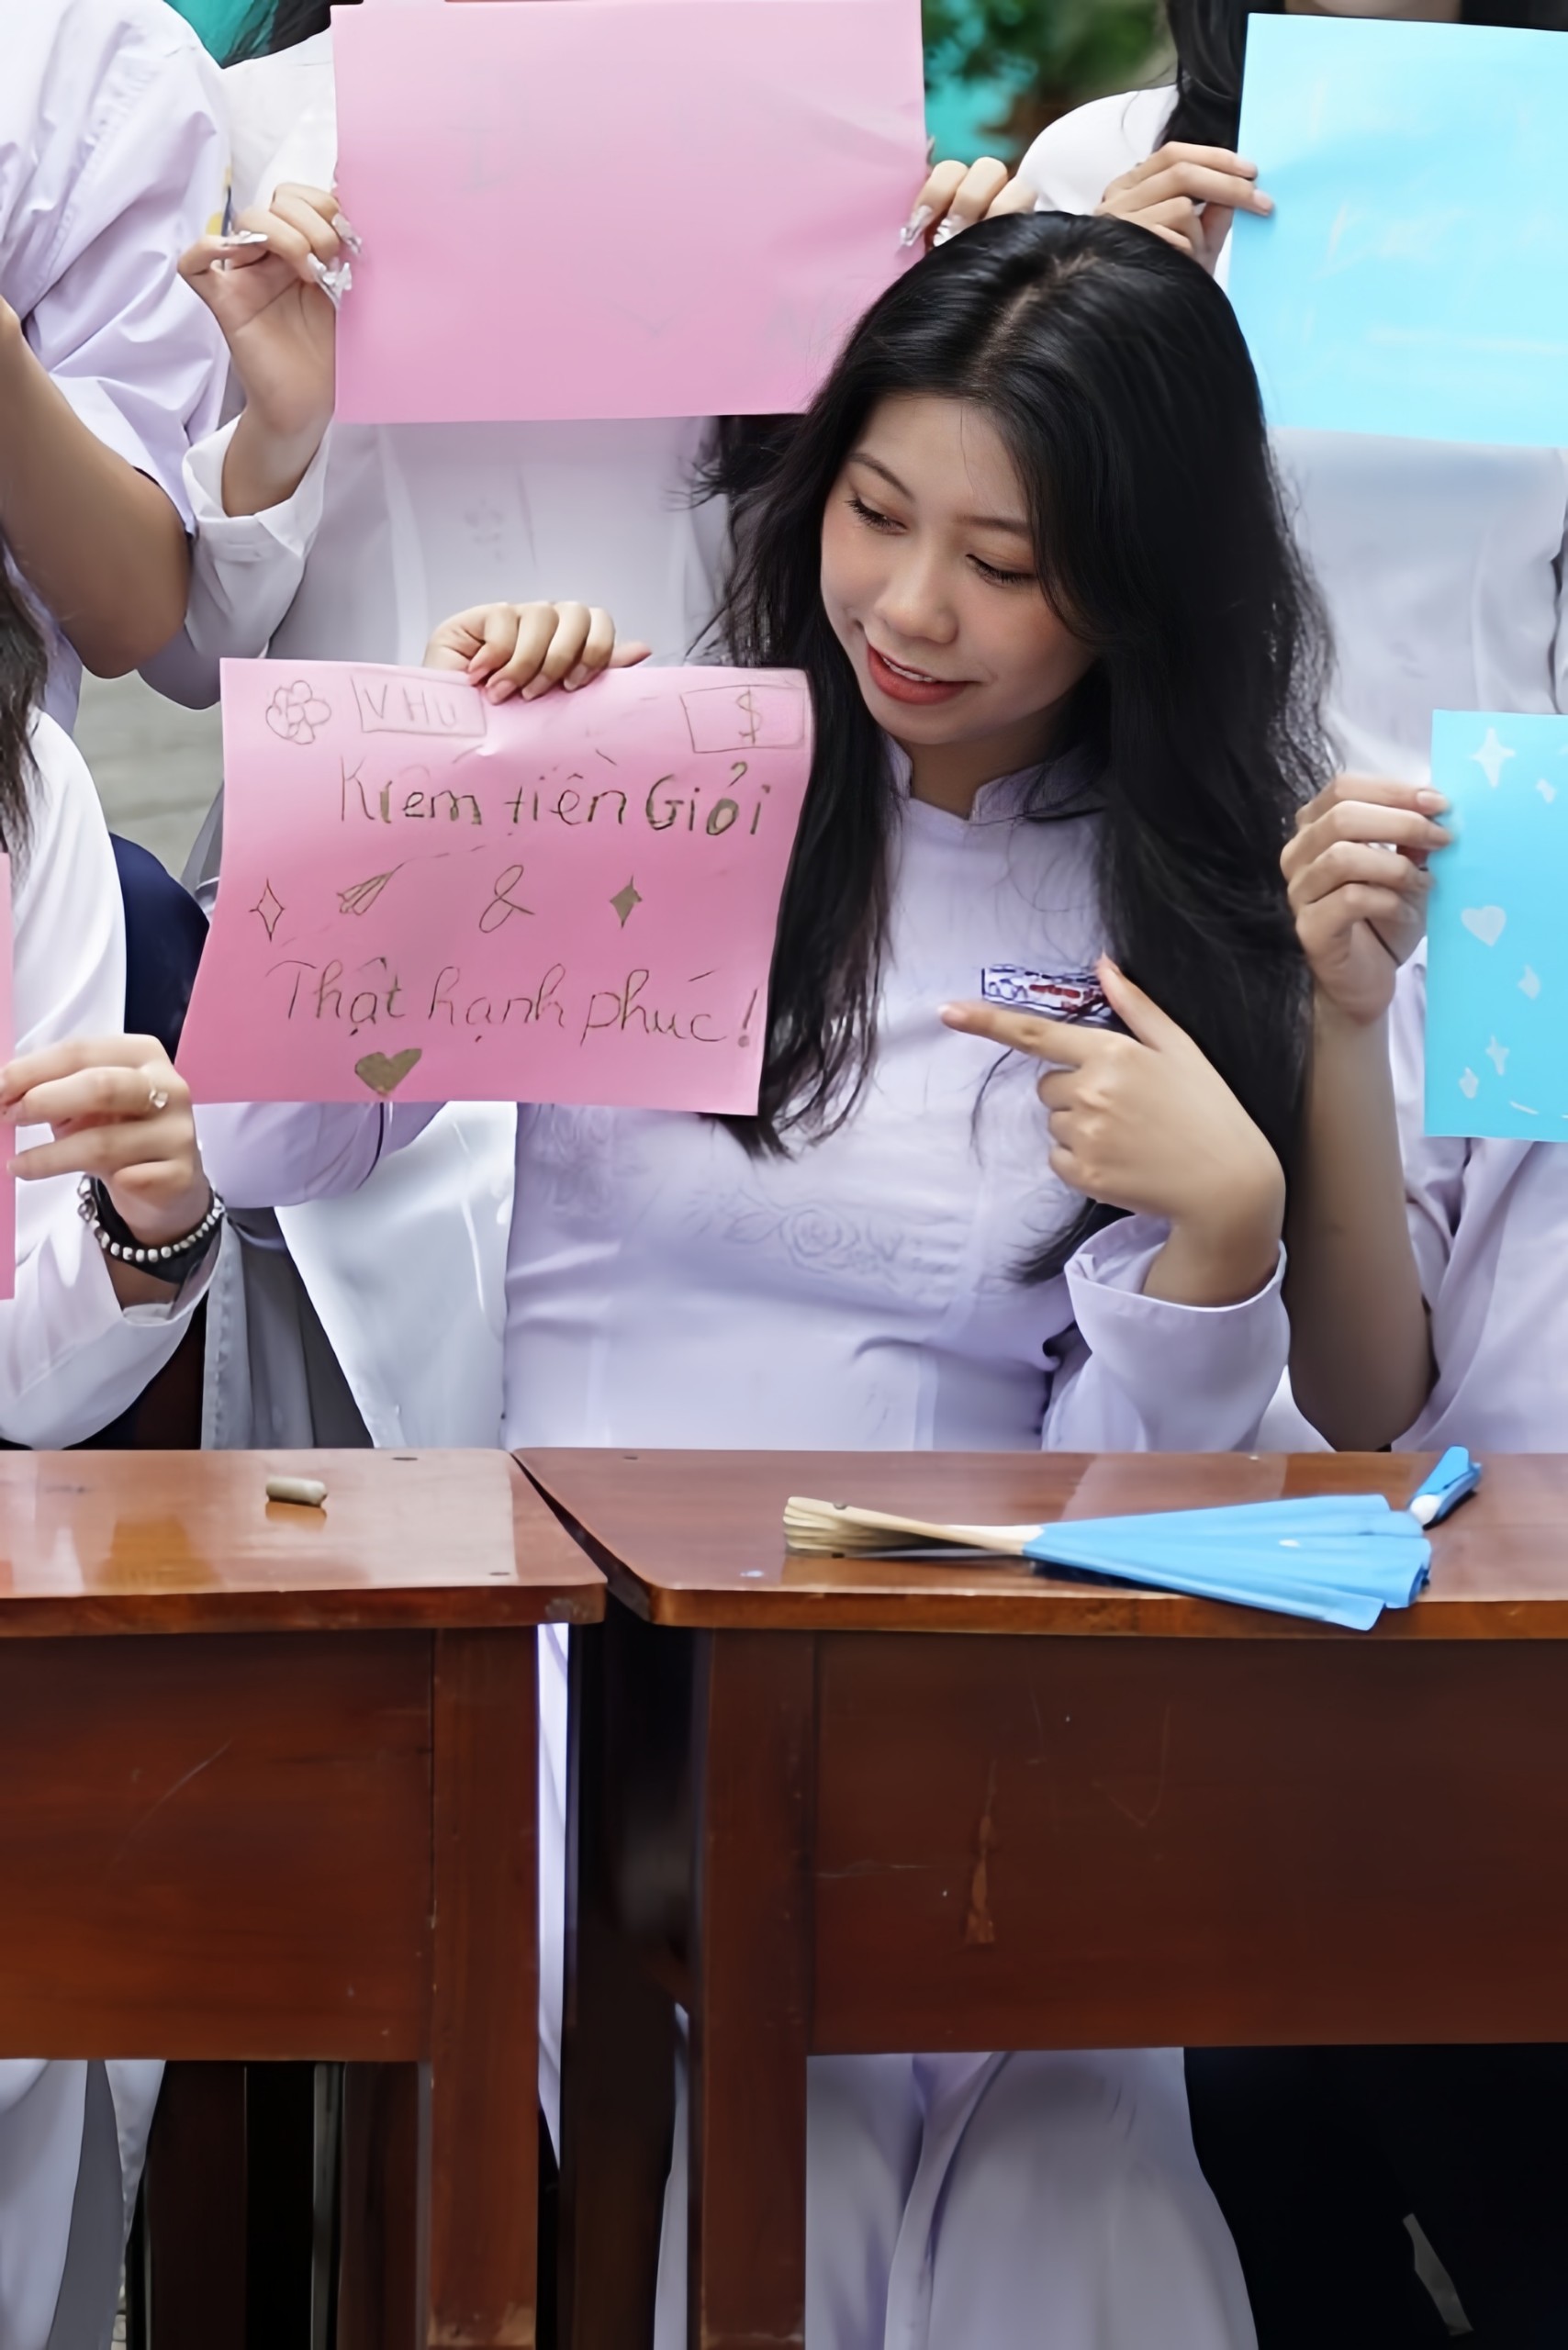 VHU $
Kiếm tiền Giỏi
&
Thật hạnh phúc!